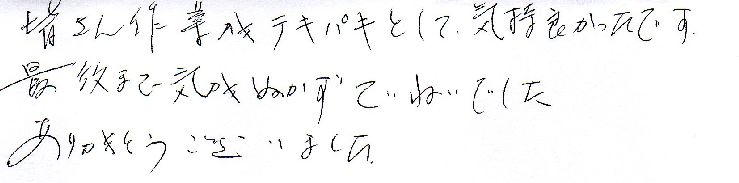 皆さん作業がテキパキとして、気持良かったです。
最後まで気がぬかずていねいでした
ありがとうございました。